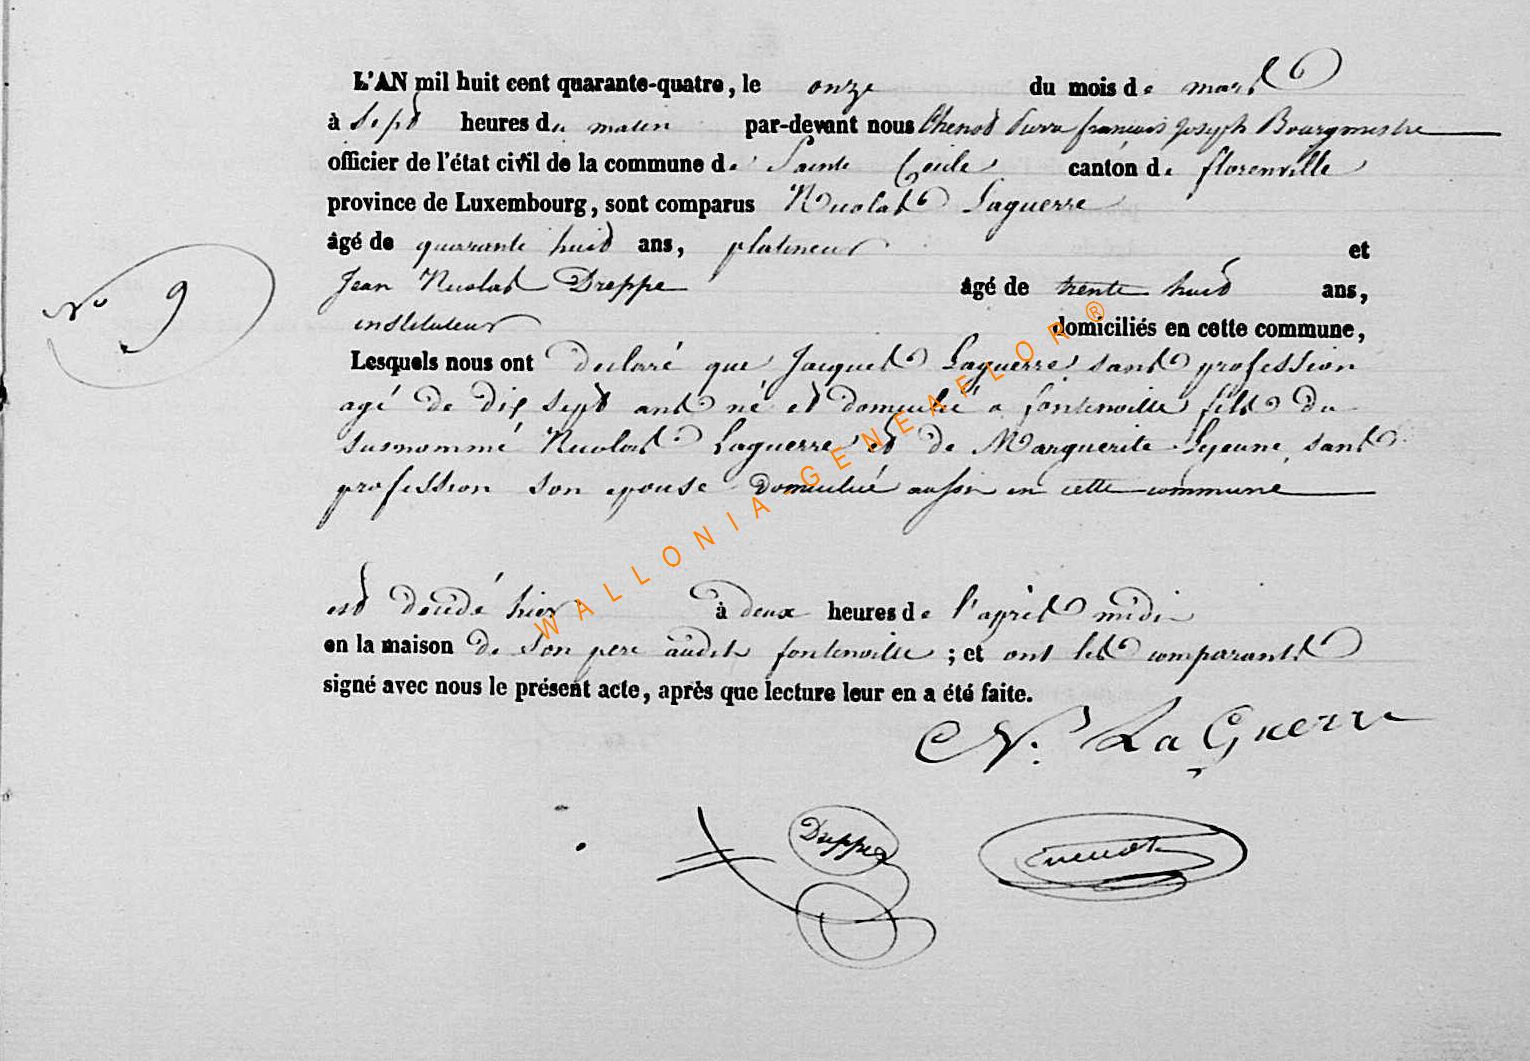 L'AN mil huit cent quarante-quatre, le onze du mois de mars
à Sept heures du matin par-devant nous Chenot Pierre françois Joseph Bourgmestre
officier de l'état civil de la commune de Sainte Cecile canton de florenville
province de Luxembourg, sont comparus Nicolas Laguerre
âgé de quarante huit ans, platineur et
Jean Nicolas Dreppe âgé de trente huit ans,
instituteur domiciliés en cette commune,
N° 9
Lesquels nous ont declaré que Jacques Laguerre sans profession
agé de dix sept ans né et domicilié a fontenoille fils du
susnommé Nicolas Laguerre et de Marguerite Lejeune sans
profession son epouse domicilié aussi en cette commune
est décédé hier à deux heures de l'après midi
en la maison de son pere audit fontenoille ; et ont les comparants
signé avec nous le présent acte, après que lecture leur en a été faite.
N. La Guerre
Dreppe
Chenot
WALLONIA-GENEAFLOR®